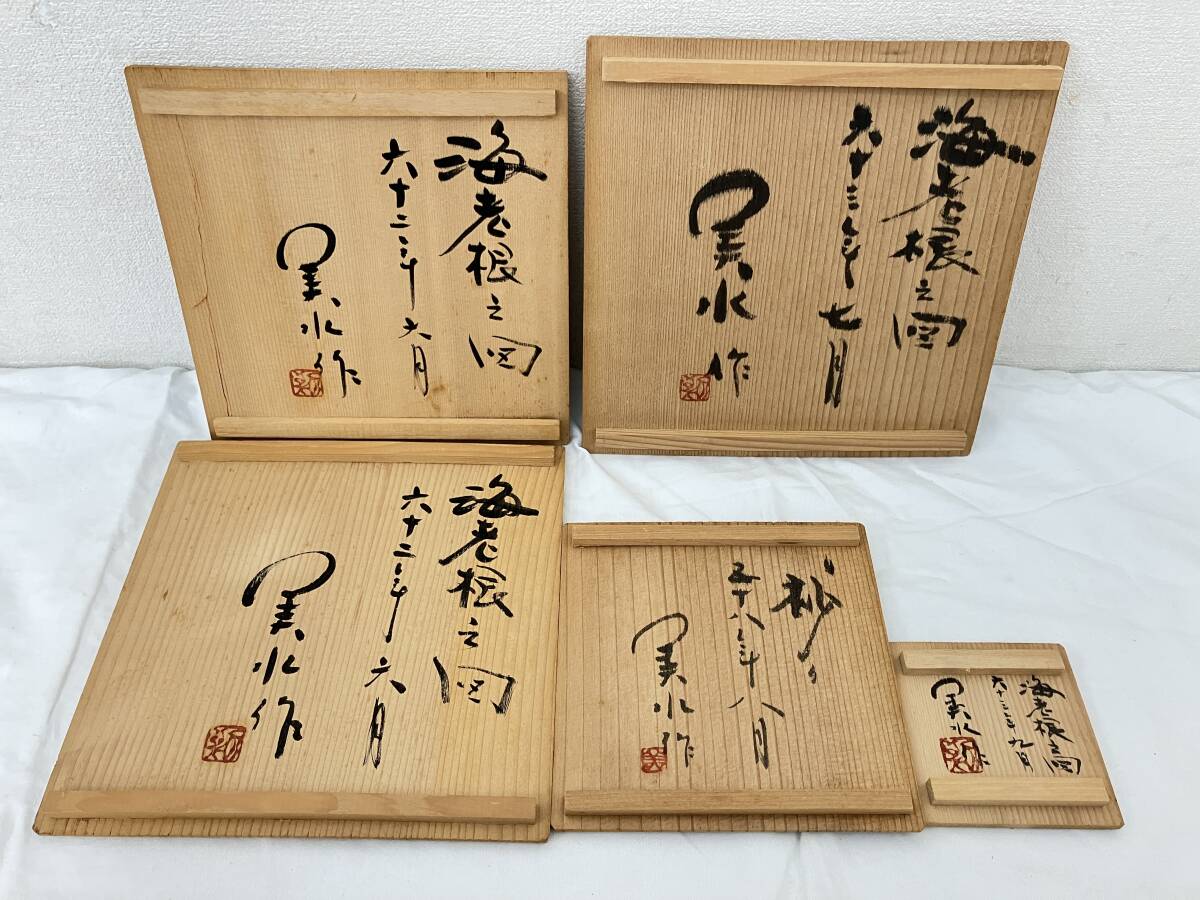 海老根之図
六十二年六月
美水作
海老根之図
六十三年七月
美水作
海老根之図
六十二年六月
美水作
五十八年八月
美水作
海老根之図
九月
美水作